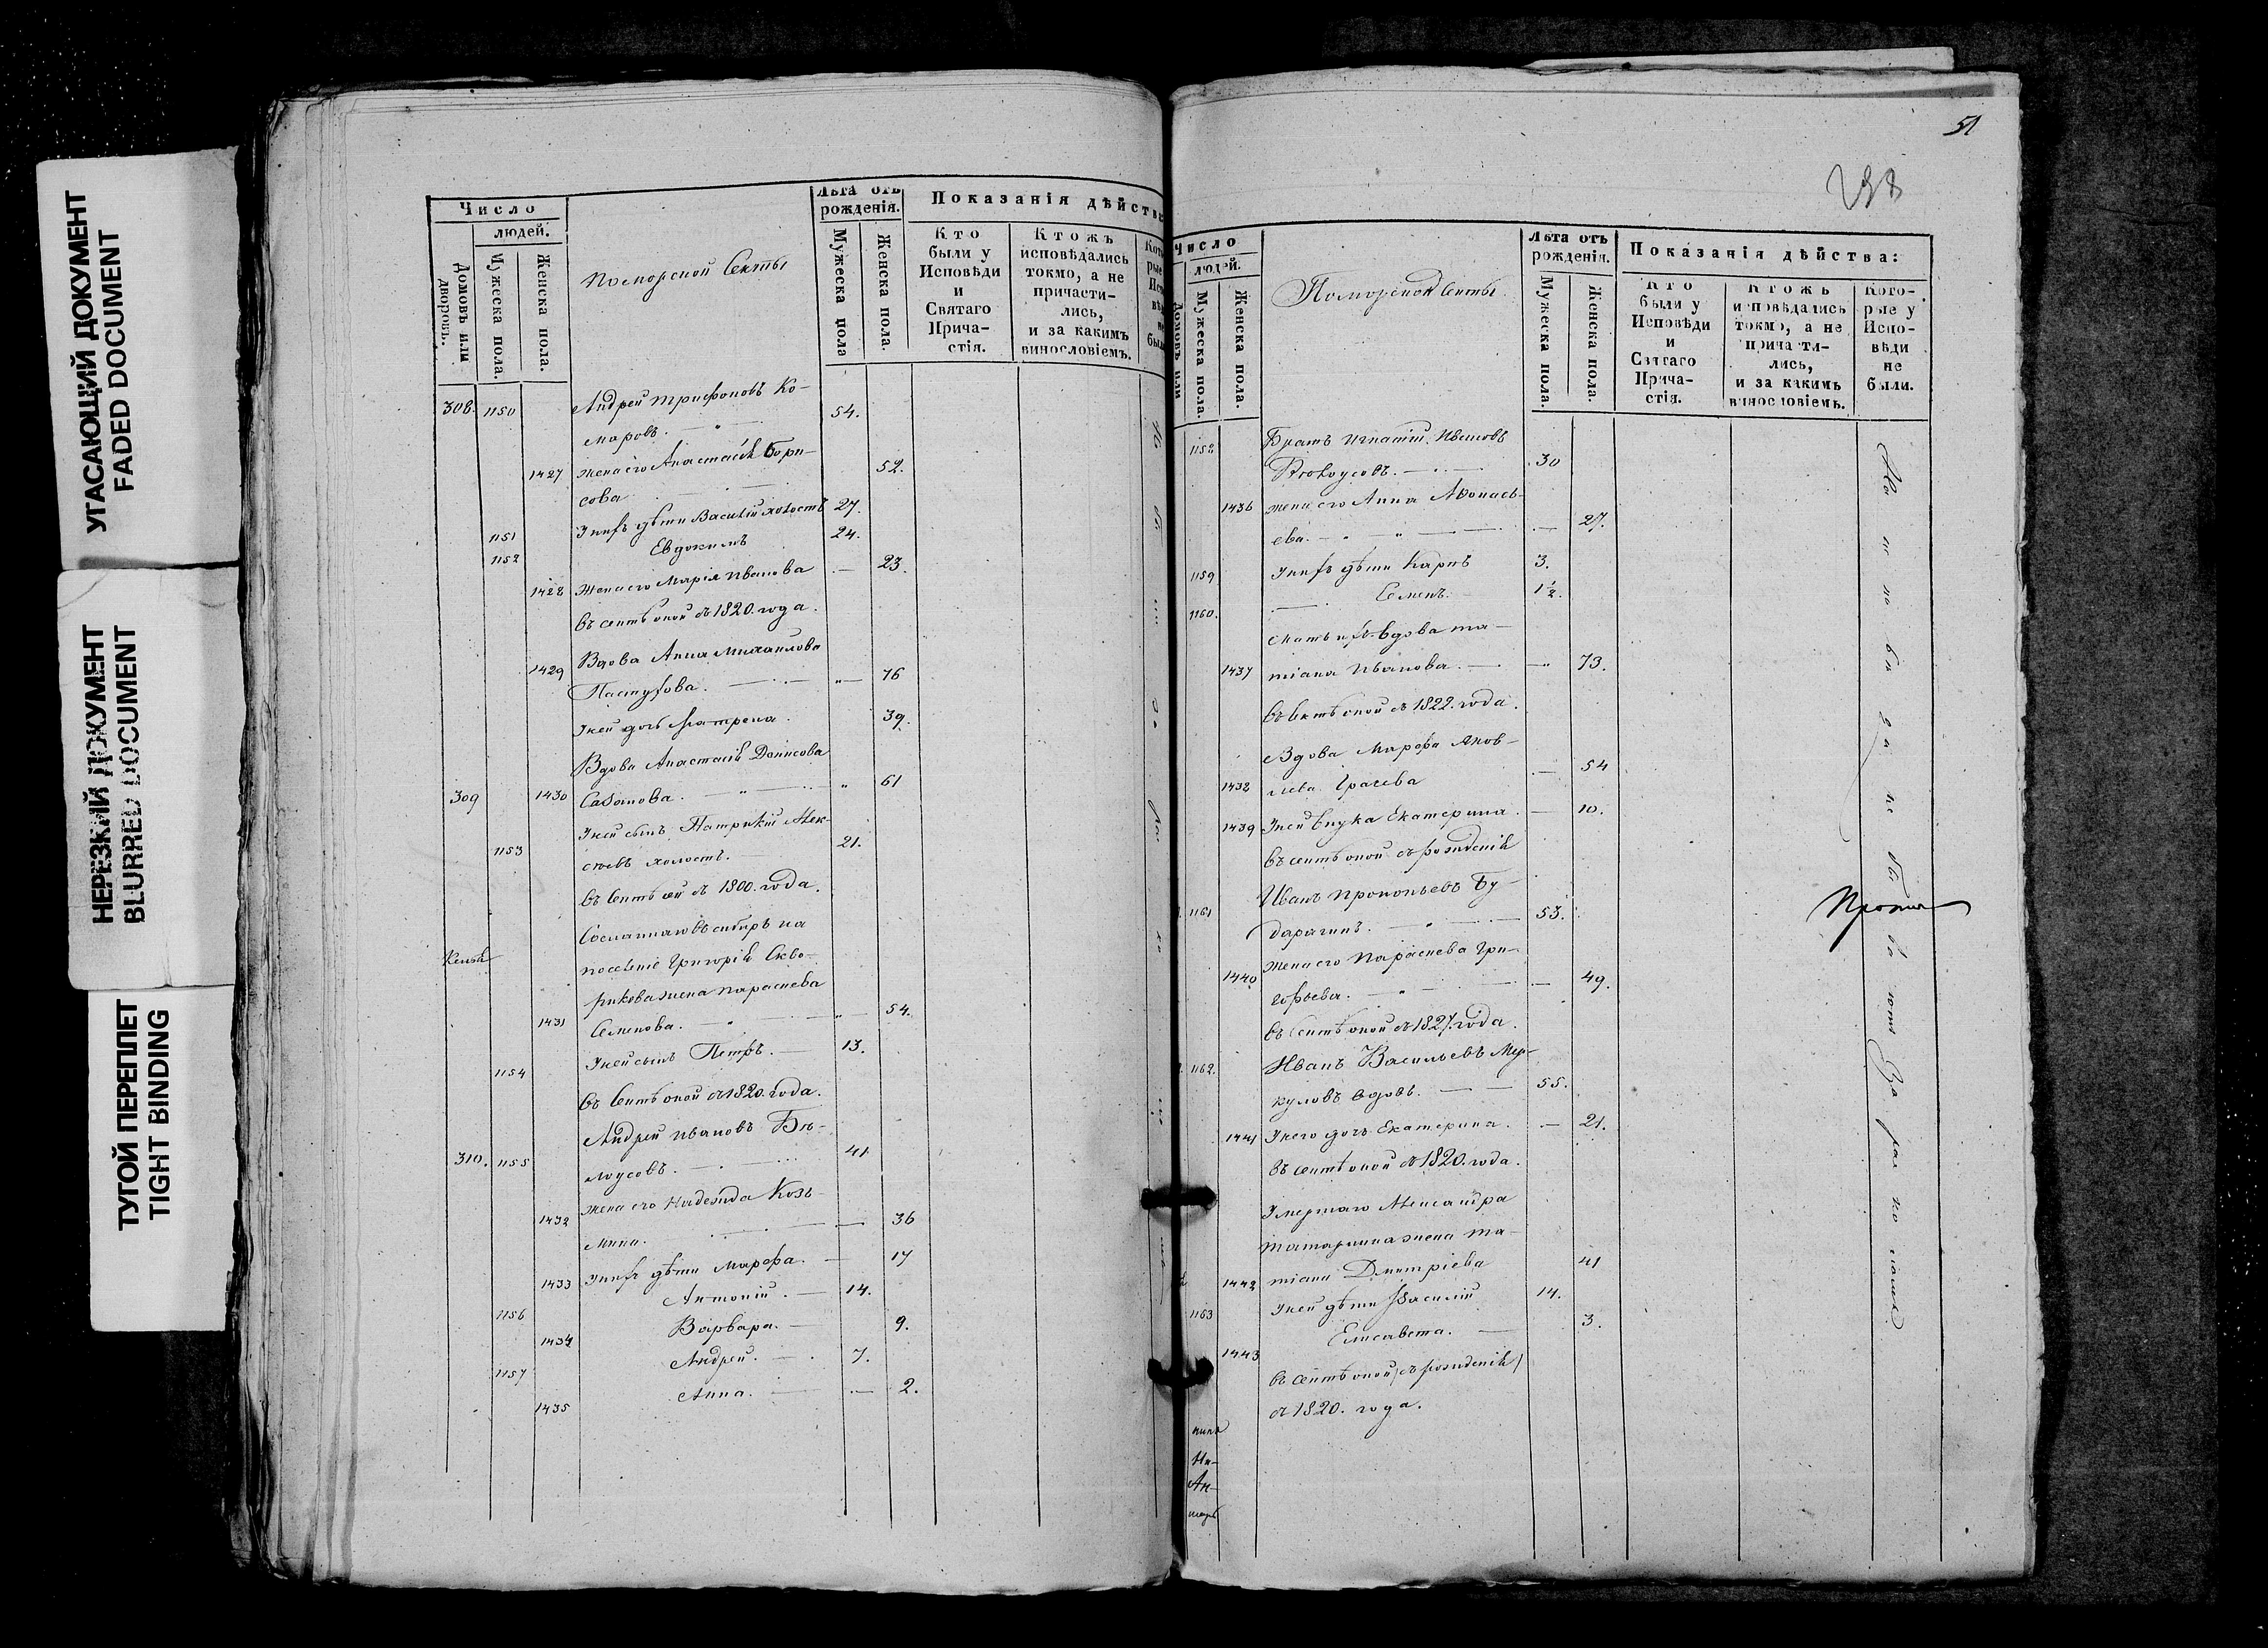 УГАСАЮЩИЙ ДОКУМЕНТ
FADED DOCUMENT
НЕРЕЗКИЙ ДОКУМЕНТ
BLURRED DOCUMENT
ТУГОЙ ПЕРЕПЛЕТ
TIGHT BINDING
Число
людей.
Домовъ или дворовъ.
Мужеска пола.
Женска пола.
Поморской Секты
Лѣта отъ рожденія.
Мужеска пола
Женска пола.
Показанія дѣйства
Кто были у Исповѣди и Святаго Прича-стія.
Ктожъ исповѣдались токмо, а не причасти-лись, и за какимъ винословіемъ.
308. 1150 Андрей Трифоновъ Ко-
маровъ. 54.
1427 жена его Анастасія Бори-
сова 52.
1151 У нихъ дѣти Василий холостъ 27.
1152 Евдокимъ 24.
1428 Жена его Марія Иванова 23.
въ сектѣ оной съ 1820. года.
1429 Вдова Анна Михаилова
Пастухова. 76
У ней дочь Матрена. 39.
Вдова Анастасія Денисова
309 1430 61
1153 У ней сынъ Патрикій Алек-
сѣевъ холостъ. 21.
въ Сектѣ сей съ 1800. года.
Сосланнаго въ сибирь на
поселеніе Григорія Скво-
рикова жена параскева
1431 Семенова. 54.
1154 У ней сынъ Петръ. 13.
въ Сектѣ оной съ 1820. года.
Андрей Ивановъ Бѣ-
310. 1155 лоусовъ. 41
1432 жена его Надежда Козь-
мина. 36
1433 У нихъ дѣти Марфа. 17
1156 Антоній. 14.
1434 Варвара. 9.
1157 Андрей. 7.
1435 Анна. 2.
51
Число
людей.
Мужеска пола.
Женска пола.
Поморской Секты
Лѣта отъ рожденія.
Мужеска пола.
Женска пола.
Показанія дѣйства:
Кто были у Исповѣди и Святаго Прича-стія.
Ктожъ исповѣдались токмо, а не прича сти-лись, и за какимъ винословіемъ.
Кото-рые у Испо-вѣди не были.
1158 Братъ Игнатій Ивановъ
30
1436 жена его Анна Афонась-
ева. 27.
1159 У нихъ дѣти Карпъ 3.
1160. Семенъ. 1½.
Мать ихъ вдова та-
1437 тіана Иванова. 73.
въ сектѣ оной съ 1822. года.
Вдова Марфа Яков-
1438 лева Грачева 54
1439 У ней внука Екатерина. 10.
въ сектѣ оной съ рожденія
1161 Иванъ Прокопьевъ Бу-
дарагинъ. 53.
1440 Жена его Параскева Гри-
горьева. 49.
въ сектѣ оной съ 1827. года.
1162. Иванъ Васильевъ Мер-
куловъ вдовъ. 55.
1441 У него дочь Екатерина. 21.
въ сектѣ оной съ 1820. года.
Умершаго Александра
татарина жена та-
1442 тіана Дмитріева 41
1163 У ней дѣти Василій 14.
1443 Елисавета. 3.
въ сектѣ оной съ рожденія
съ 1820. года.